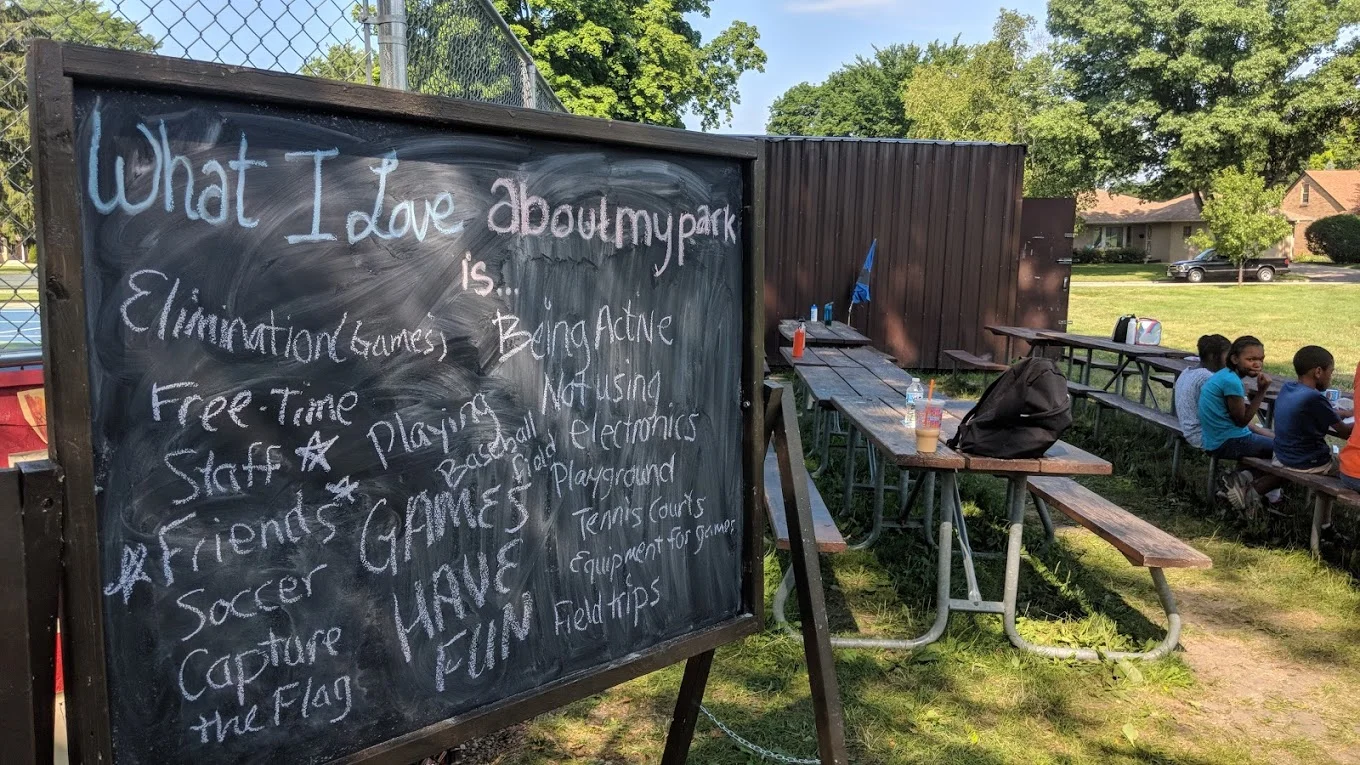 What I Love about my park
is...
Elimination (Games)
Free-Time
Staff
Friends
Soccer
Capture
the Flag
Playing
Baseball
field
GAMES
HAVE
FUN
Being Active
Not using
electronics
Playground
Tennis Courts
Equipment for games
Field trips